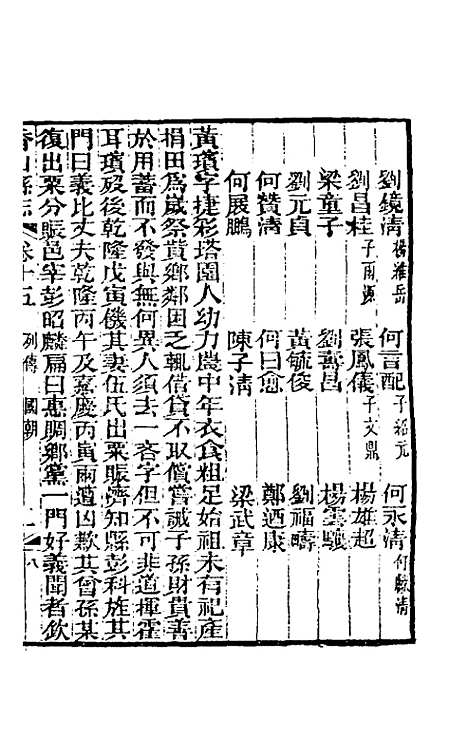 劉鏡清楊維岳　何言配子裕元　何永清何縣清
劉昌桂子甬源　張鳳儀子文鼎　楊雄超
梁童子　劉壽昌　楊雲驤
劉元貞　黃毓俊　劉福疇
何贊清　何曰愈　鄭迺康
何展鵬　陳子清　梁武章
黃瓊字捷彩塔園人幼力農中年衣食粗足始祖未有祀產
捐田為歲祭費鄉鄰困乏輒借貸不取償嘗誡子孫財貴善
於用蓄而不發與無何異人須去一吝字但不可非道揮霍
耳瓊歿後乾隆戊寅饑其妻伍氏出粟賑濟知縣彭科旌其
門曰義比丈夫乾隆丙午及嘉慶丙寅兩遭凶歉其曾孫某
復出粟分賑邑宰彭昭麟扁曰惠賙鄉黨一門好義聞者欽
香山縣志　卷十五　列傳　國朝　八